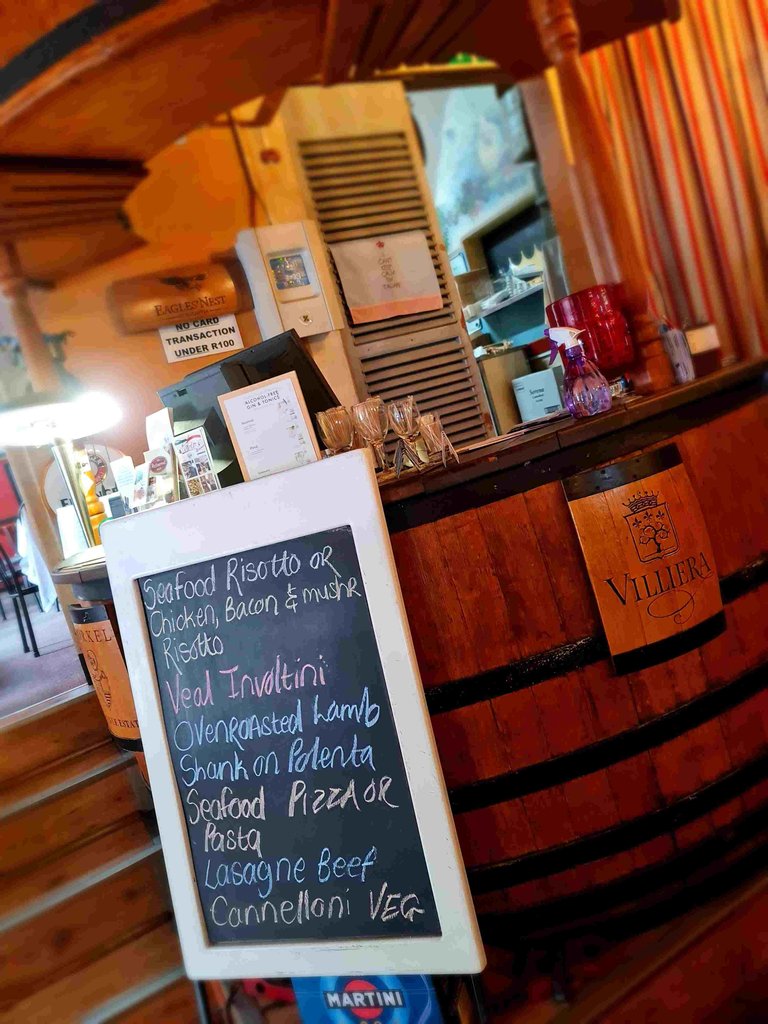 EAGLES' NEST
NO CARD
TRANSACTION
UNDER R100
ALCOHOL FREE
GIN & TONICS
Seafood Risotto OR
Chicken, Bacon & mushr
Risotto
Veal Involtini
OvenRoasted Lamb
Shank on Polenta
Seafood PIZZA OR
Pasta
Lasagne Beef
Cannelloni VEG
VILLIERA
MARTINI